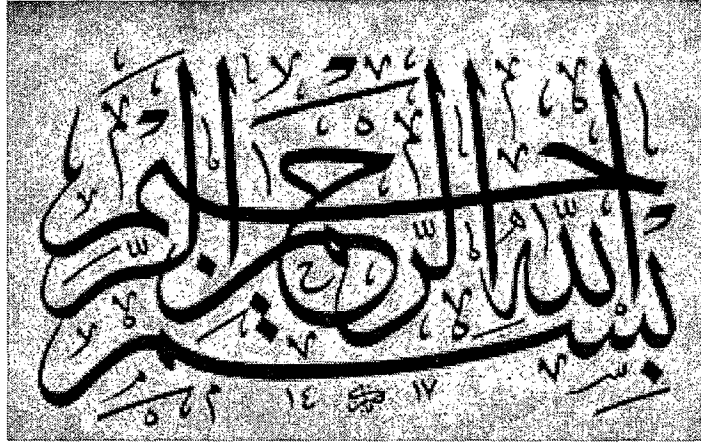 بسم الله الرحمن الرحيم
١٤ ١٧